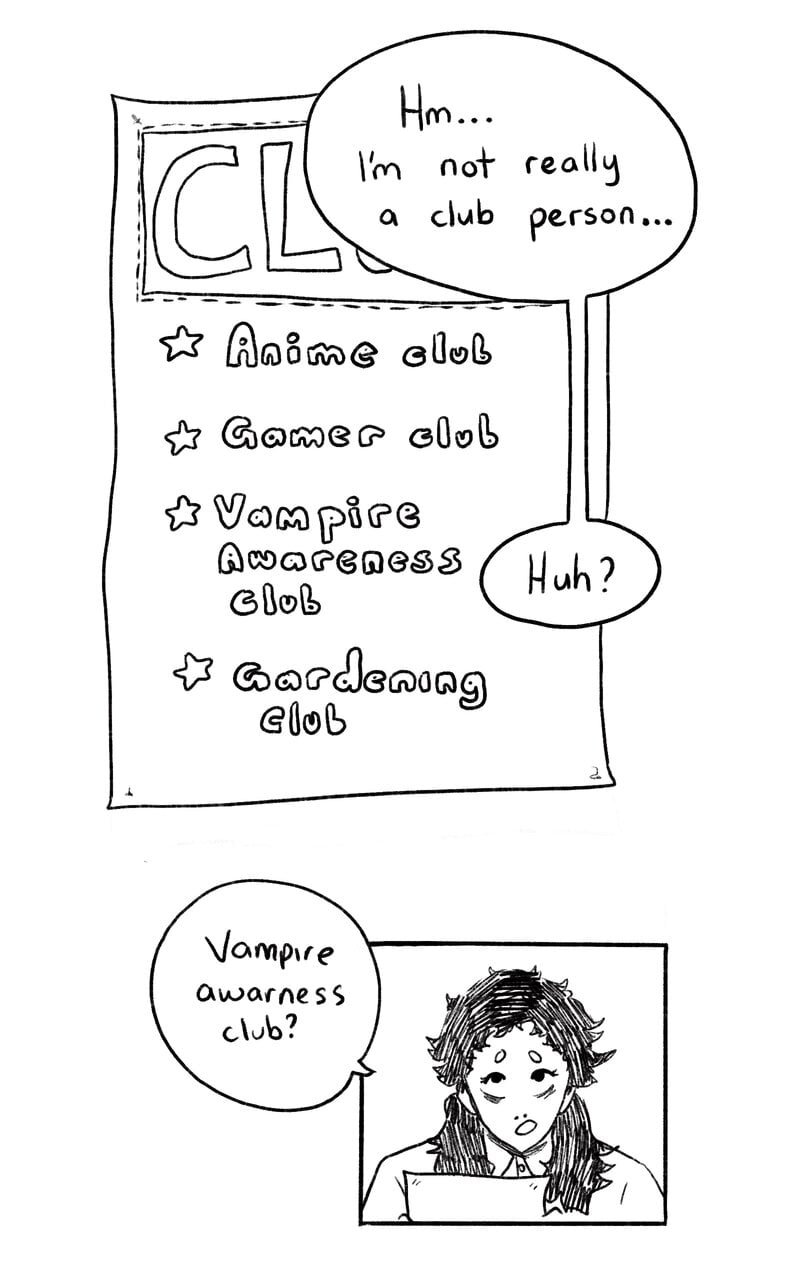 Hm...
I'm not really
a club person...
CLU
Anime club
Gamer club
Vampire
Awareness
club
Huh?
Gardening
club
Vampire
awarness
club?